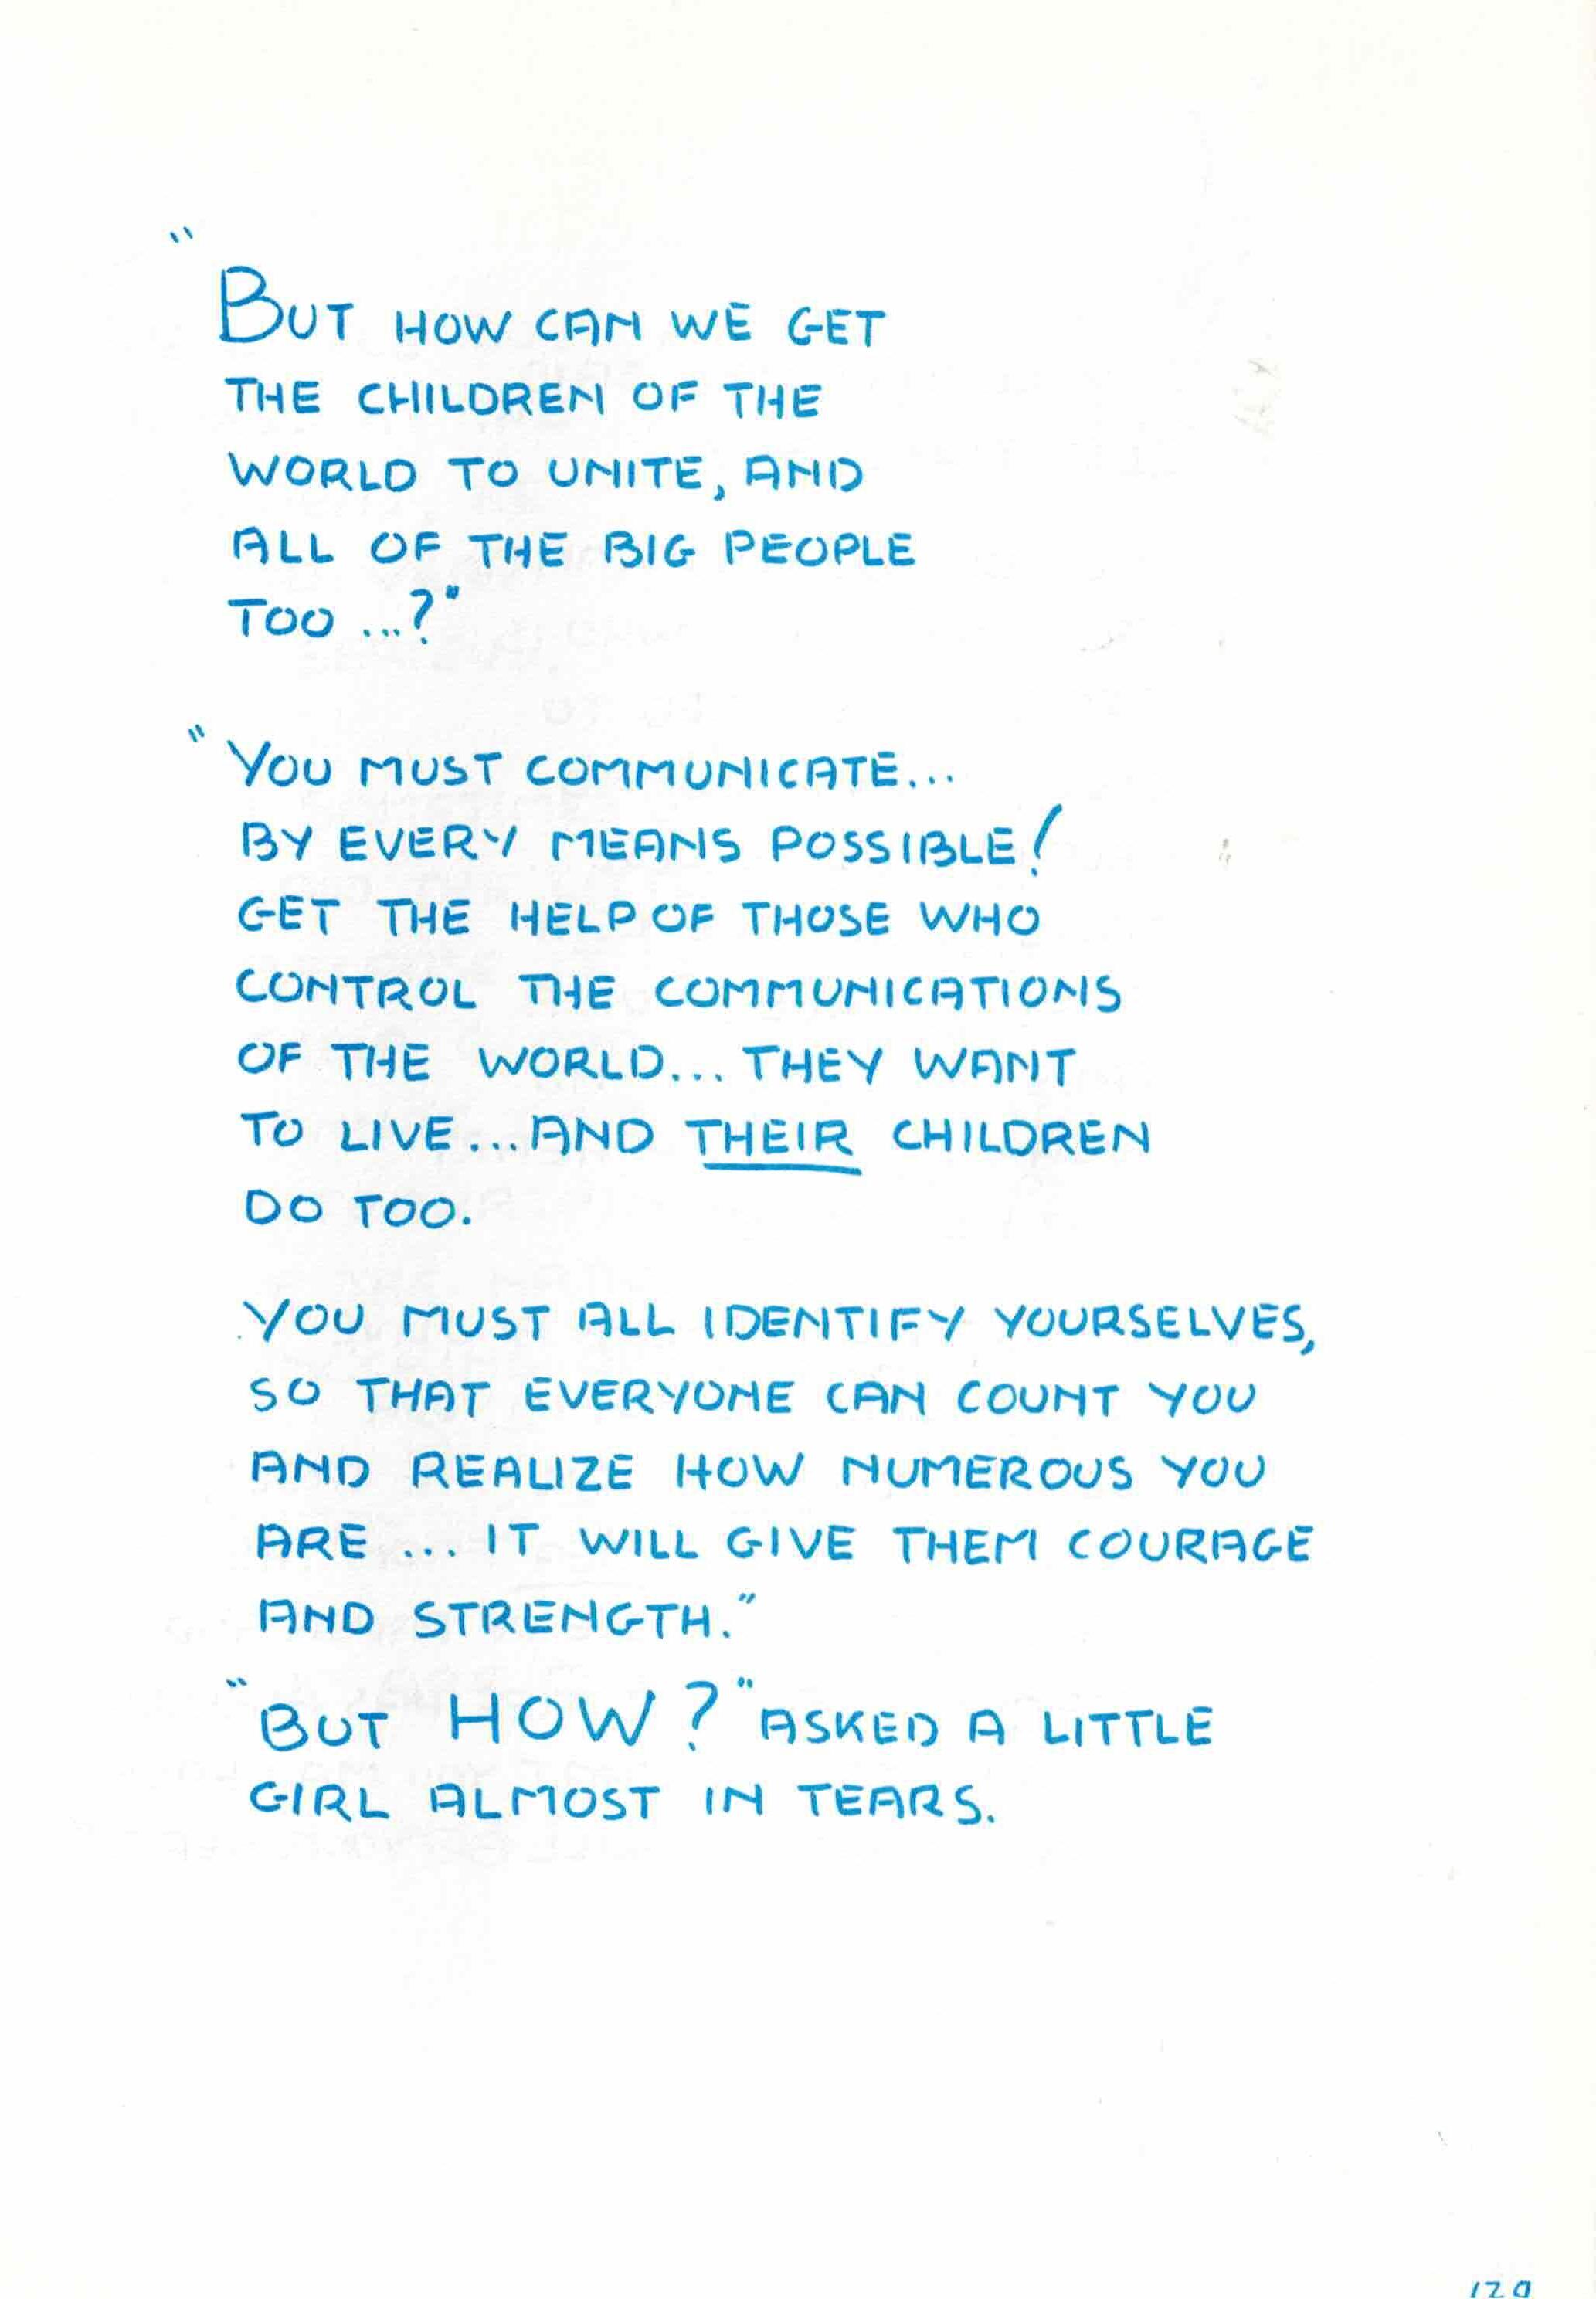 "
BUT HOW CAN WE GET
THE CHILDREN OF THE
WORLD TO UNITE, AND
ALL OF THE BIG PEOPLE
TOO ...?"
"YOU MUST COMMUNICATE...
BY EVERY MEANS POSSIBLE!
GET THE HELP OF THOSE WHO
CONTROL THE COMMUNICATIONS
OF THE WORLD... THEY WANT
TO LIVE... AND THEIR CHILDREN
DO TOO.
YOU MUST ALL IDENTIFY YOURSELVES,
SO THAT EVERYONE CAN COUNT YOU
AND REALIZE HOW NUMEROUS YOU
ARE ... IT WILL GIVE THEM COURAGE
AND STRENGTH."
"BUT HOW?" ASKED A LITTLE
GIRL ALMOST IN TEARS.